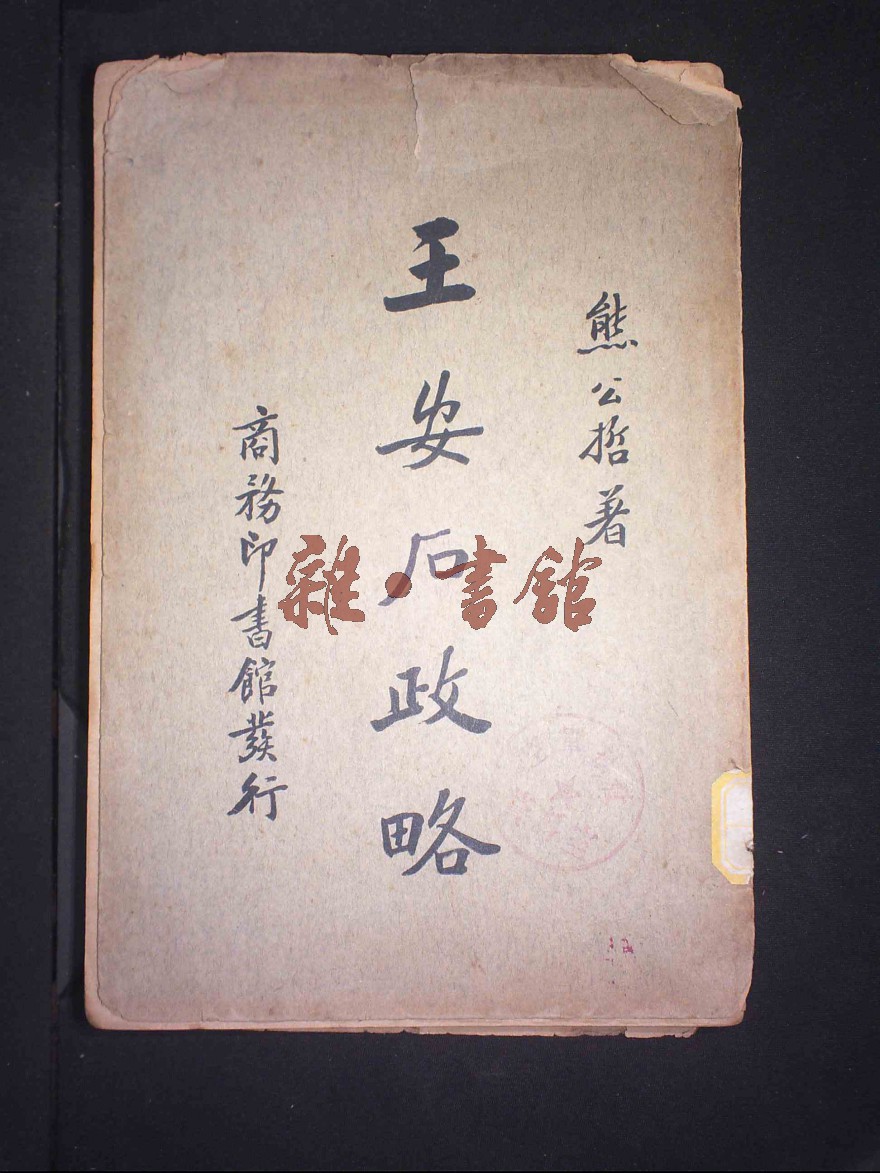 熊公哲著
王安石政略
商務印書館發行
雜·書館